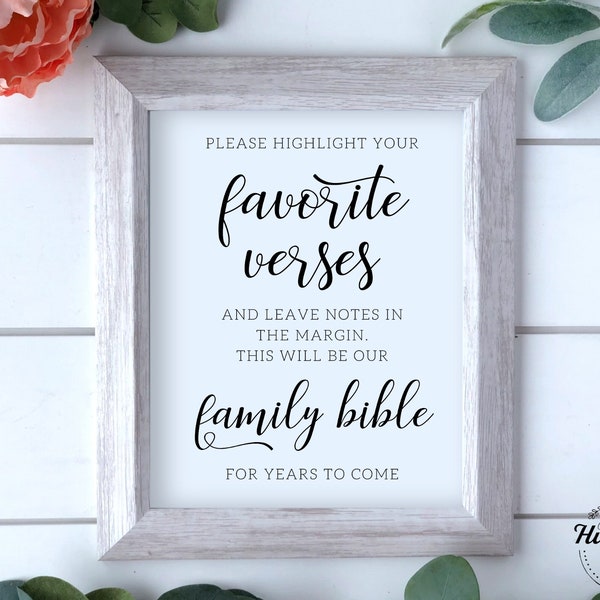 PLEASE HIGHLIGHT YOUR
favorite
verses
AND LEAVE NOTES IN
THE MARGIN.
THIS WILL BE OUR
family bible
FOR YEARS TO COME